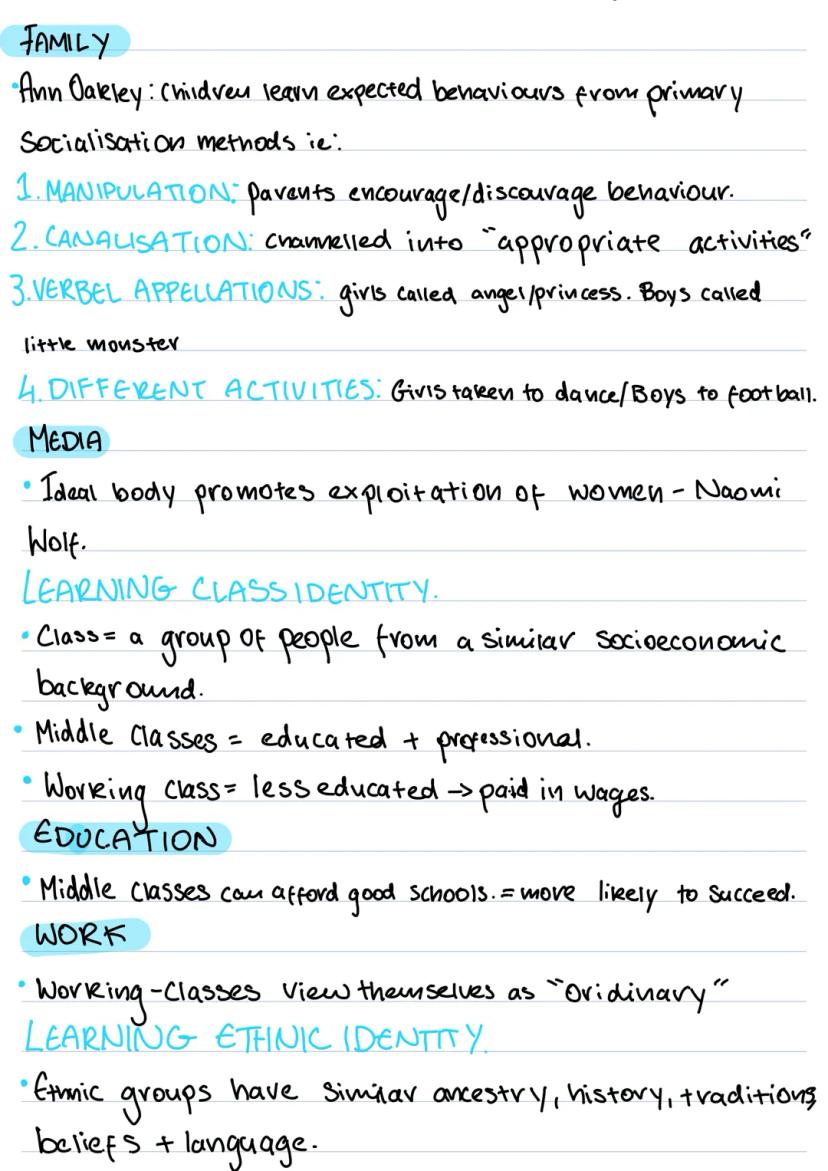 FAMILY
•Ann Oakley: Children learn expected behaviours from primary
Socialisation methods ie:
1. MANIPULATION: parents encourage/discourage behaviour.
2. CANALISATION: channelled into "appropriate activities"
3. VERBEL APPELLATIONS: girls called angel/princess. Boys called
little monster
4. DIFFERENT ACTIVITIES: Girls taken to dance/Boys to football.
MEDIA
• Ideal body promotes exploitation of women - Naomi
Wolf.
LEARNING CLASS IDENTITY.
• Class = a group of people from a similar socioeconomic
background.
• Middle Classes = educated + professional.
• Working class = less educated → paid in wages.
EDUCATION
• Middle classes can afford good schools. = more likely to succeed.
WORK
• Working-Classes view themselves as "oridinary"
LEARNING ETHNIC IDENTITY.
• Ethnic groups have similar ancestry, history, traditions,
beliefs + language.